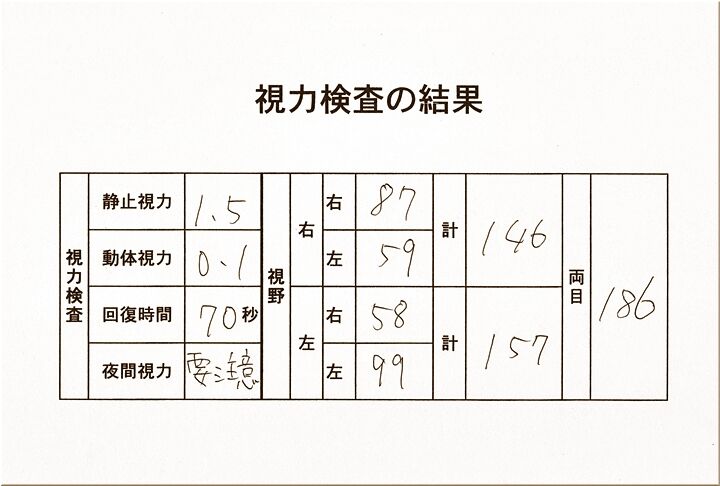 視力検査の結果
視力検査
静止視力 1.5
動体視力 0.1
回復時間 70秒
夜間視力 要注意
視野
右 右 87 左 59 計 146
左 右 58 左 99 計 157
両目 186